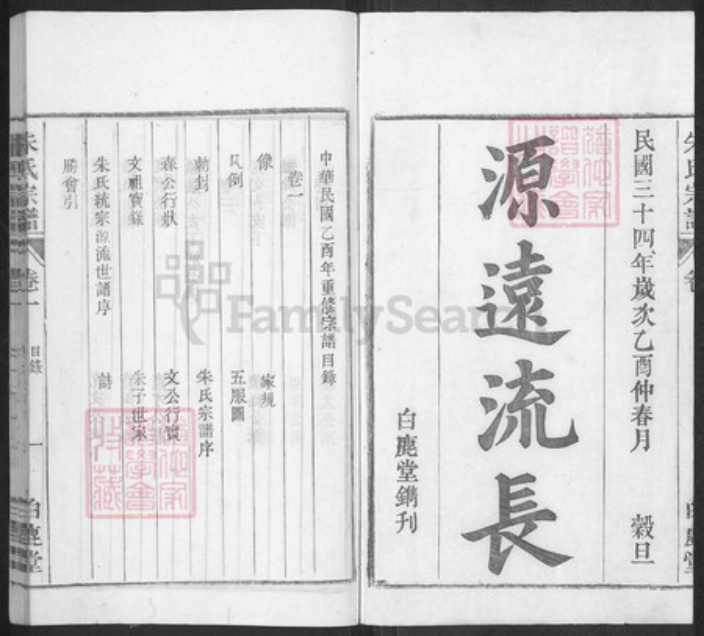 民國三十四年歲次乙酉仲春月 穀旦
源遠流長
白鹿堂鐫刊
中華民國乙酉年重修宗譜目錄
卷一
像 家規
凡例 五服圖
勅封 朱氏宗譜序
森公行狀 文公行實
文祖實錄 朱子世家
朱氏統宗源流世譜序 詩
勝會引
朱氏宗譜
卷一
目錄
一
白鹿堂
朱氏宗譜
卷
白鹿堂
FamilySearch